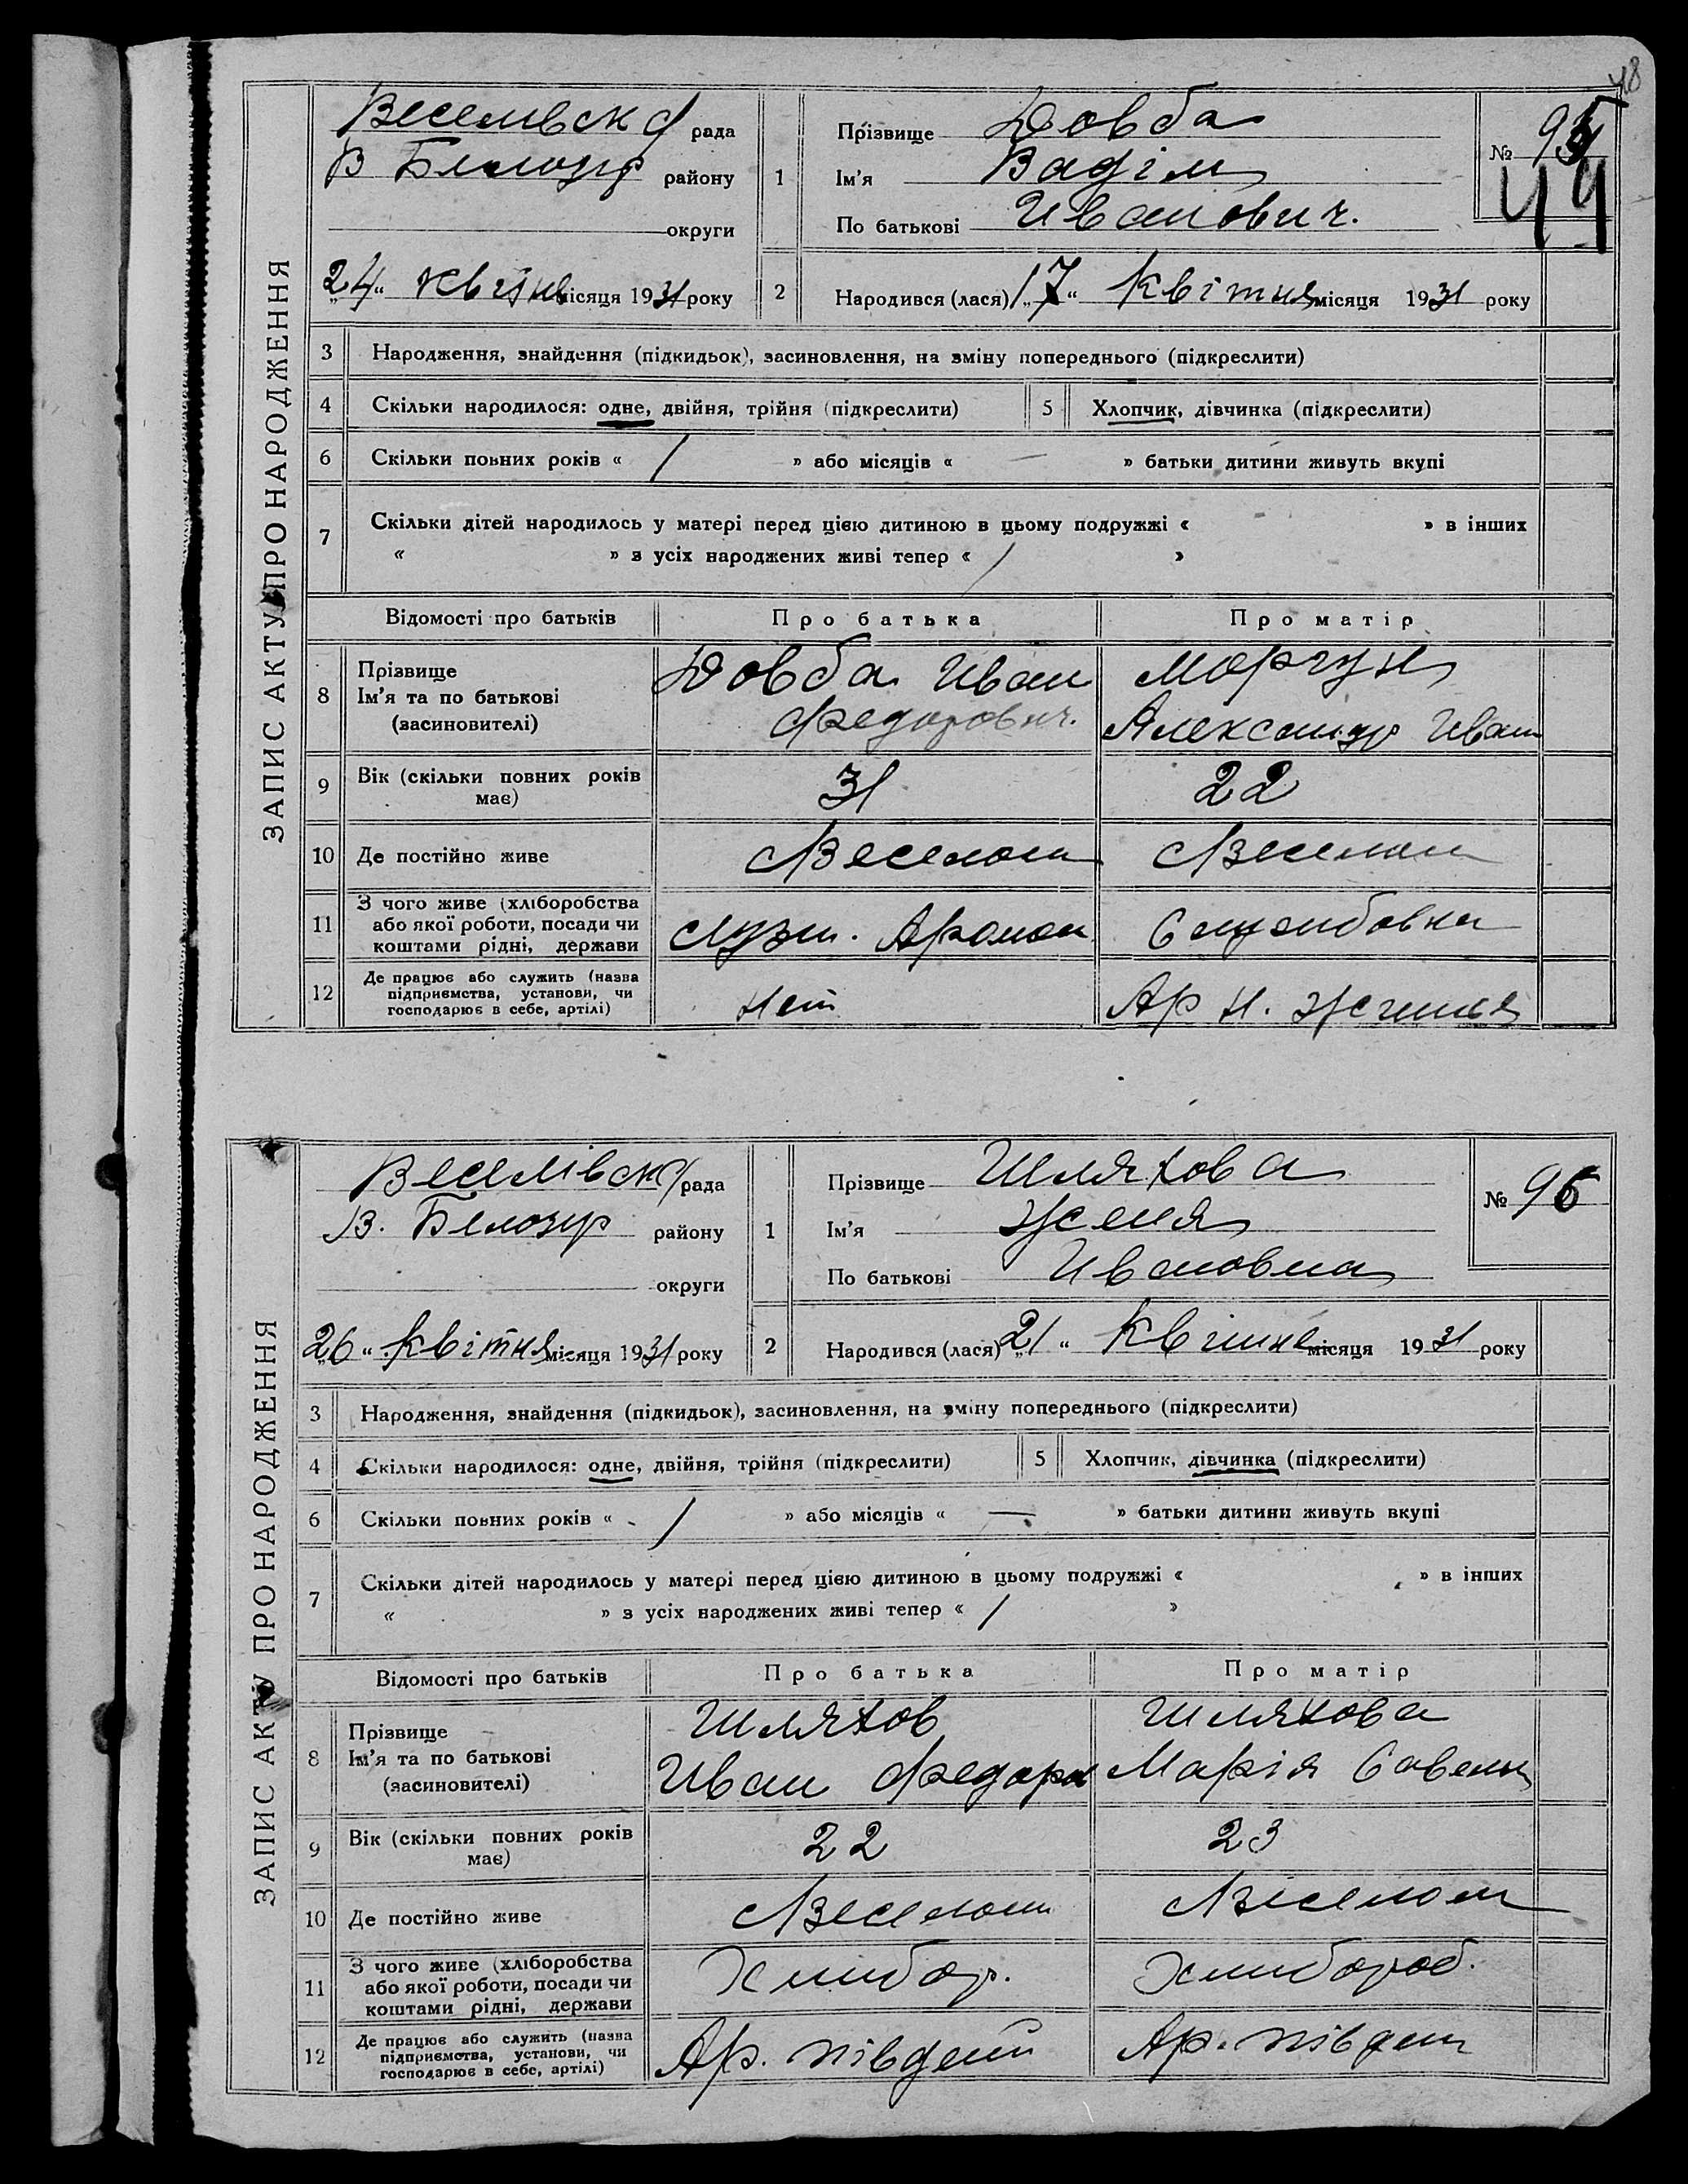 48
ЗАПИС АКТУ ПРО НАРОДЖЕННЯ
Веселивск рада
В Билозір району
округи
„24“ квітня місяця 1931 року
1
Прізвище Довба
Ім'я Вадім
По батькові Иванович.
№ 95
44
2
Народився (лася) „17“ квітня місяця 1931 року
3 Народження, знайдення (підкидьок), засиновлення, на зміну попереднього (підкреслити)
4 Скільки народилося: одне, двійня, трійня (підкреслити) 5 Хлопчик, дівчинка (підкреслити)
6 Скільки повних років « / » або місяців « — » батьки дитини живуть вкупі
7 Скільки дітей народилось у матері перед цією дитиною в цьому подружжі « » в інших
« » з усіх народжених живі тепер « / »
Відомості про батьків Про батька Про матір
8 Прізвище
Ім'я та по батькові
(засиновителі)
Довба Иван
Федорович.
Моргун
Александр Иван
9 Вік (скільки повних років має) 31 22
10 Де постійно живе с Веселом с Веселом
11 З чого живе (хліборобства
або якої роботи, посади чи
коштами рідні, держави
12 Де працює або служить (назва
підприємства, установи, чи
господарює в себе, артілі)
нет
ЗАПИС АКТУ ПРО НАРОДЖЕННЯ
Веселівск рада
В. Билозір району
округи
„26“ квітня місяця 1931 року
1
Прізвище Шляхова
Ім'я Женя
По батькові Ивановна
№ 96
2
Народився (лася) „21“ квітня місяця 1931 року
3 Народження, знайдення (підкидьок), засиновлення, на зміну попереднього (підкреслити)
4 Скільки народилося: одне, двійня, трійня (підкреслити) 5 Хлопчик, дівчинка (підкреслити)
6 Скільки повних років « / » або місяців « — » батьки дитини живуть вкупі
7 Скільки дітей народилось у матері перед цією дитиною в цьому подружжі « » в інших
« » з усіх народжених живі тепер « / »
Відомості про батьків Про батька Про матір
8 Прізвище
Ім'я та по батькові
(засиновителі)
Шляхов
Иван Федоров
Шляхова
Марія Савельн
9 Вік (скільки повних років має) 22 23
10 Де постійно живе с Веселом с Веселом
11 З чого живе (хліборобства
або якої роботи, посади чи
коштами рідні, держави
Хлибор. Хлибороб.
12 Де працює або служить (назва
підприємства, установи, чи
господарює в себе, артілі)
Ар. південь Ар. півден